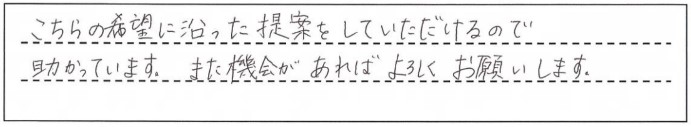 こちらの希望に沿った提案をしていただけるので
助かっています。また機会があればよろしくお願いします。